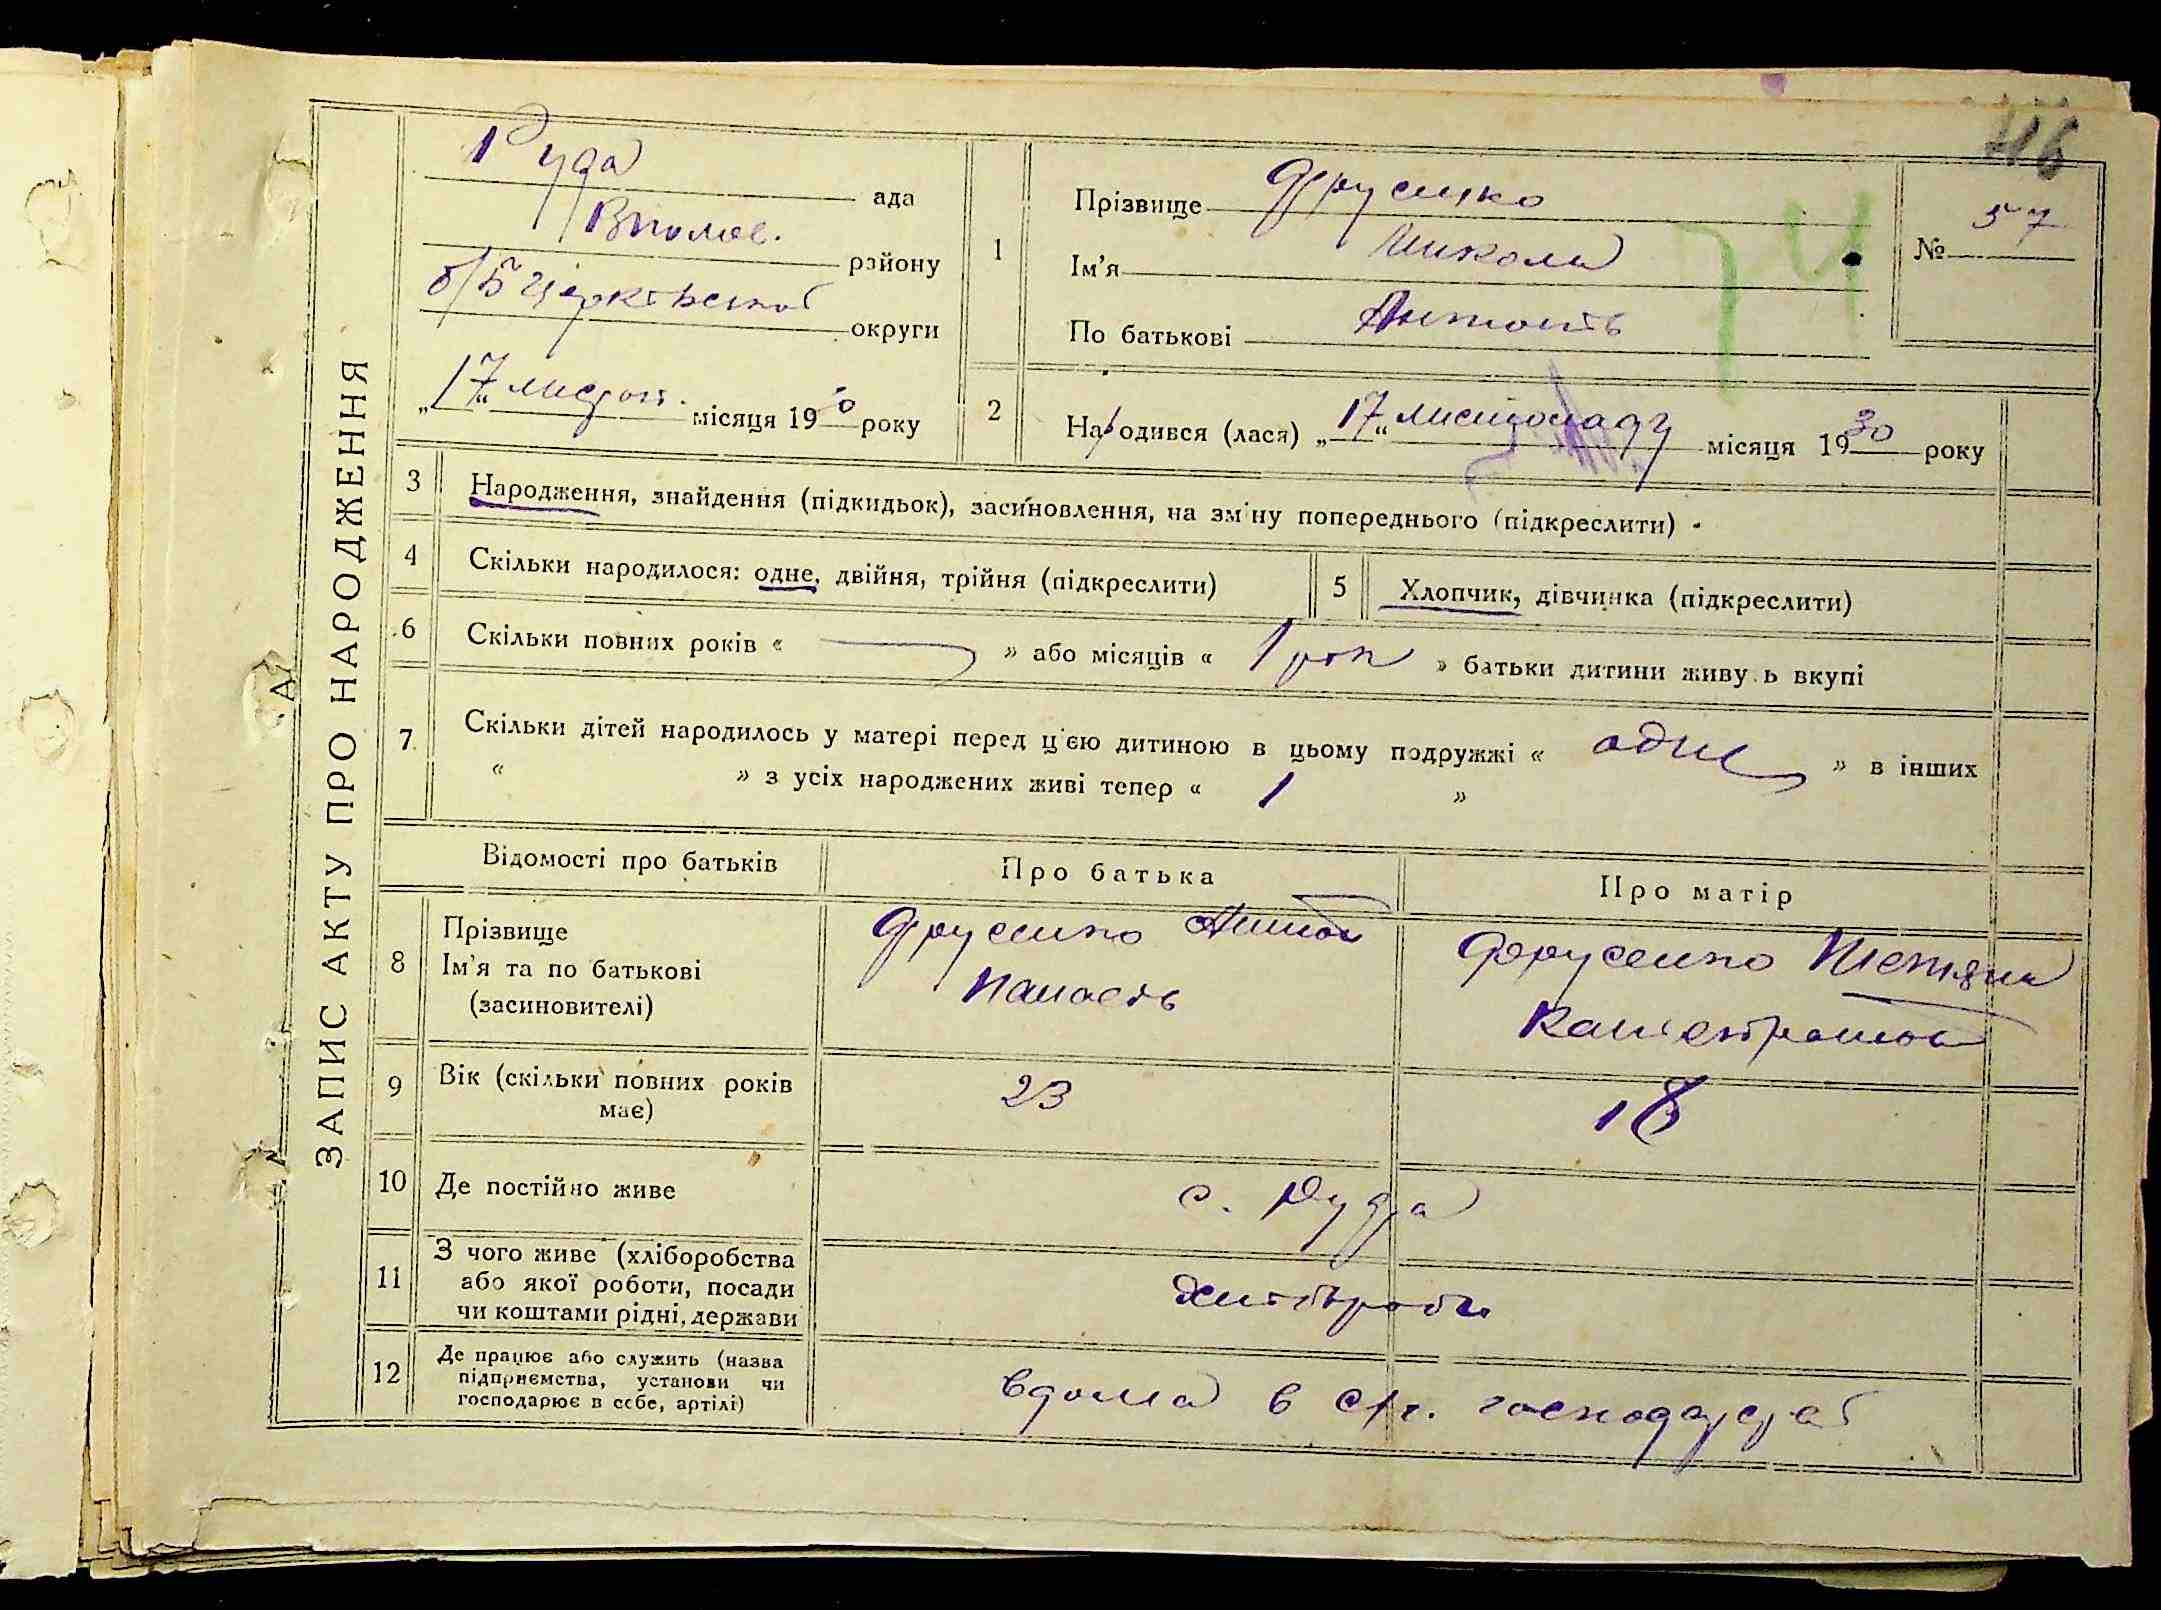 116
ЗАПИС АКТУ ПРО НАРОДЖЕННЯ
Руда
ада
району
округи
„17“ листоп. місяця 19 30 року
1
Прізвище
Ім'я Микола
По батькові
№ 57
74
2
Народився (лася) „17“ листопаду місяця 1930 року
3
Народження, знайдення (підкидьок), засиновлення, на зміну попереднього (підкреслити)
4
Скільки народилося: одне, двійня, трійня (підкреслити)
5
Хлопчик, дівчинка (підкреслити)
6
Скільки повних років « — » або місяців « 1 рік » батьки дитини живуть вкупі
7
Скільки дітей народилось у матері перед цією дитиною в цьому подружжі « одне » в інших
« » з усіх народжених живі тепер « 1 »
Відомості про батьків
Про батька
Про матір
8
Прізвище
Ім'я та по батькові
(засиновителі)
9
Вік (скільки повних років
має)
23
18
10
Де постійно живе
с. Руда
11
З чого живе (хліборобства
або якої роботи, посади
чи коштами рідні, держави
12
Де працює або служить (назва
підприємства, установи чи
господарює в себе, артілі)
вдома в с/г. господарстві